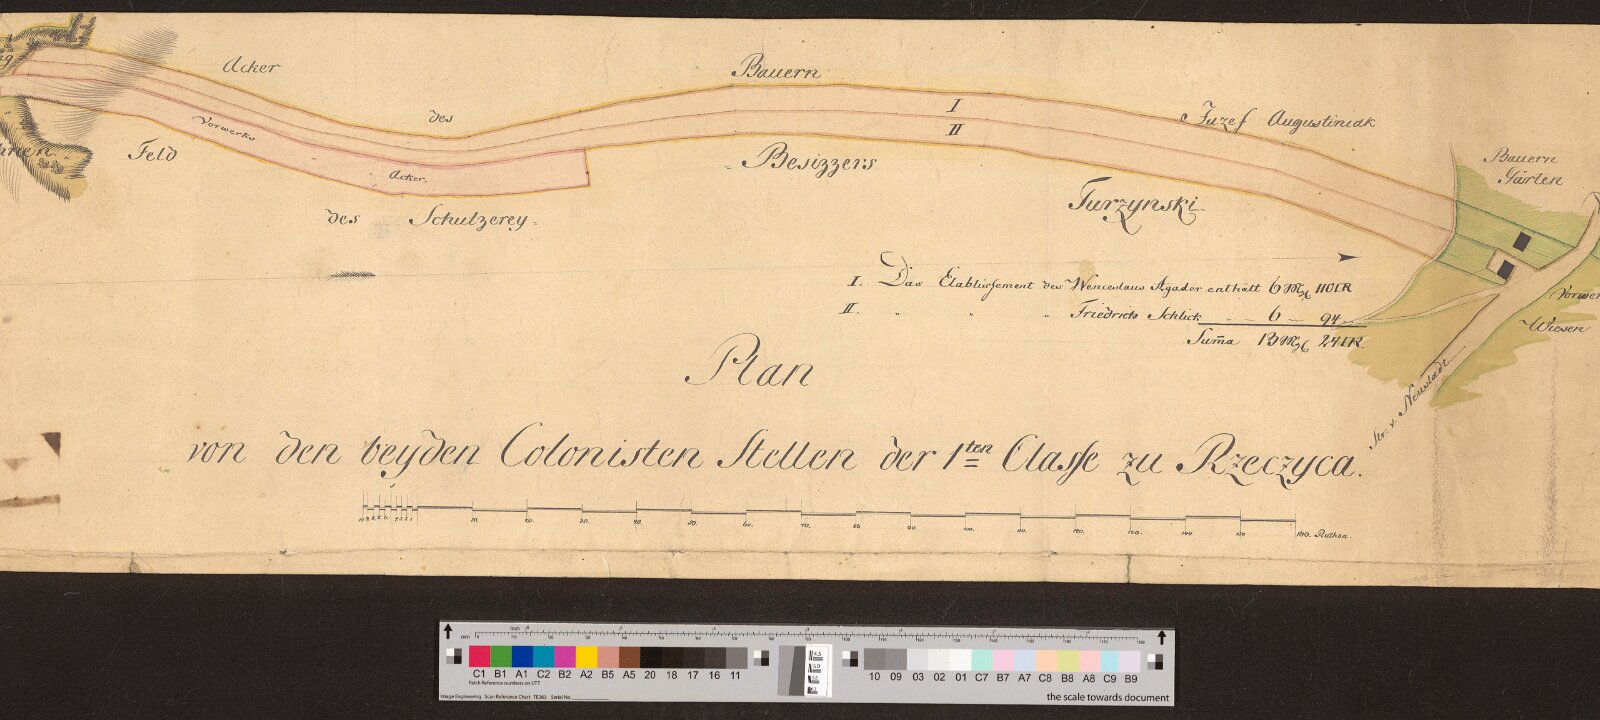 Acker
Bauern
des
I
II
Juzef Augustiniak
Vorwerks
Feld
Acker.
Besizzers
Turzynski
des Schulzerey
Bauern
Gärten
I. Das Etablissement des Wenceslaus Agader enthält 6 Mg 110 □R
II. " " " Friedrich Schlick - - 6 - 94 -
Suma 13 Mg 24 □R.
Wiesen
Str. v. Neustadt
Plan
von den beyden Colonisten Stellen der 1ten Classe zu Rzeczyca.
10. 20. 30. 40. 50. 60. 70. 80. 90. 100. 110. 120. 130. 140. 150. 160. Ruthen.
mm Inch
C1 B1 A1 C2 B2 A2 B5 A5 20 18 17 16 11
10 09 03 02 01 C7 B7 A7 C8 B8 A8 C9 B9
Patch Reference numbers on UTT
Image Engineering Scan Reference Chart TE263 Serial No.
the scale towards document